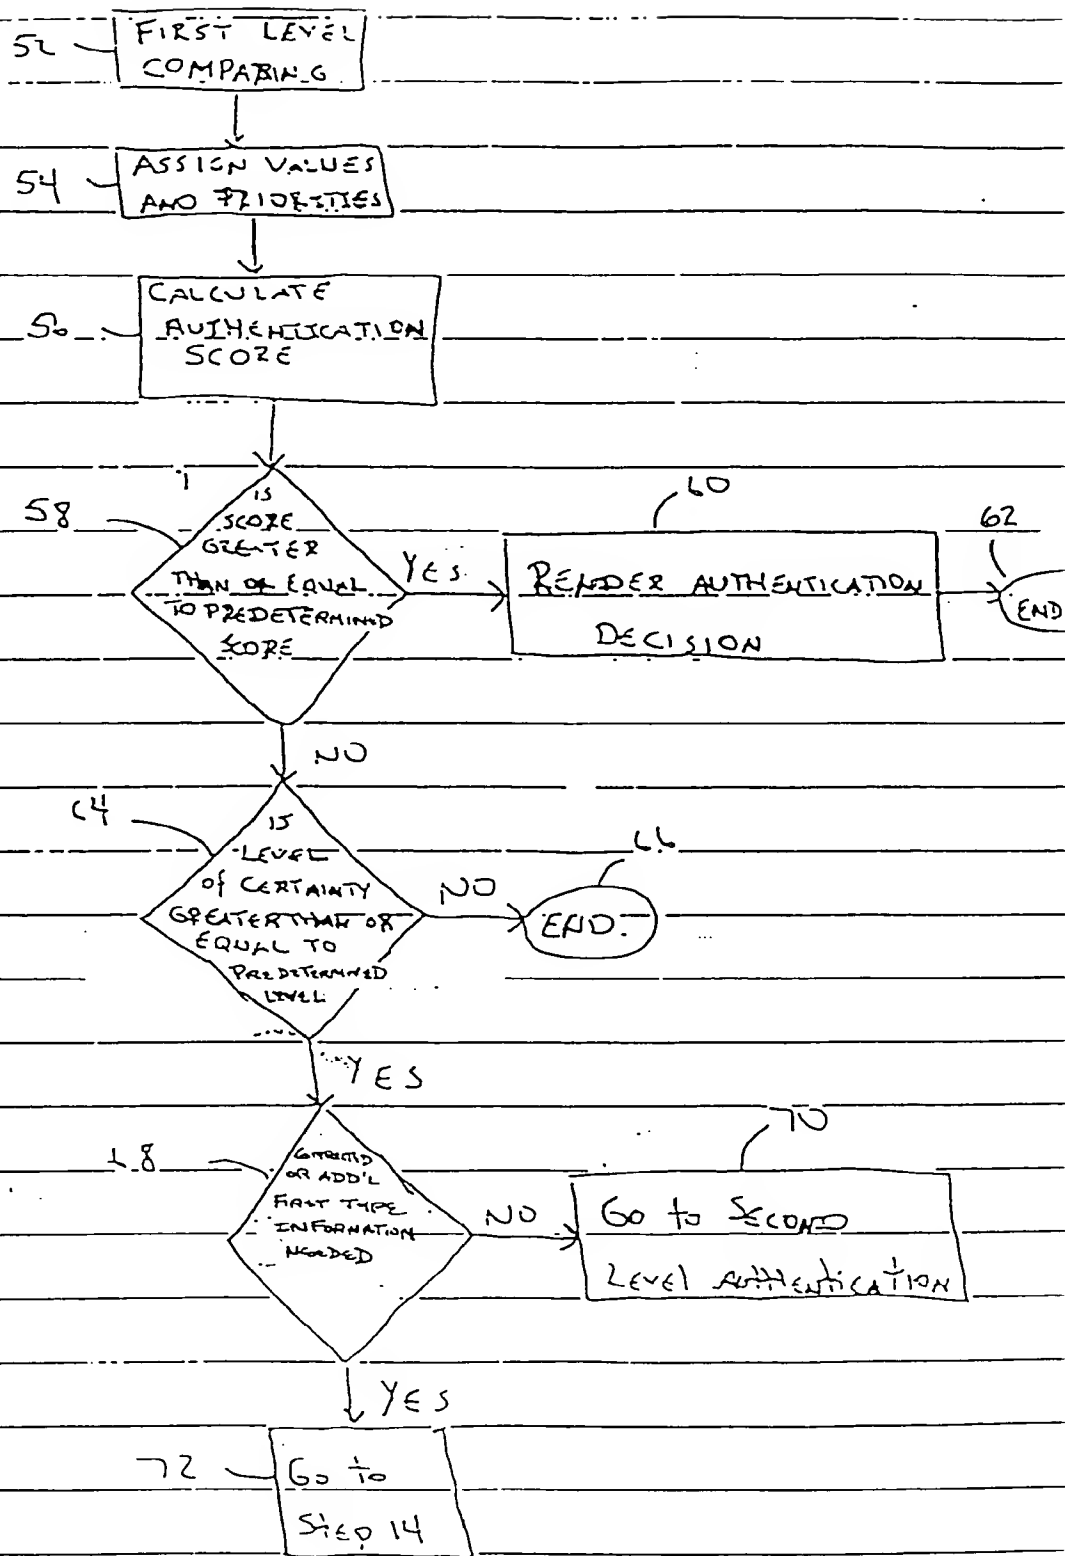 52
FIRST LEVEL
COMPARING
54
ASSIGN VALUES
AND PRIORITIES
CALCULATE
AUTHENTICATION
SCORE
58
IS
SCORE
GREATER
THAN OR EQUAL
TO PREDETERMINED
SCORE
YES
60
RENDER AUTHENTICATION
DECISION
62
END
NO
64
IS
LEVEL
Of CERTAINTY
GREATER THAN OR
EQUAL TO
PREDETERMINED
LEVEL
NO
66
END.
YES
68
OR ADD'L
FIRST TYPE
INFORMATION
NEEDED
NO
70
Go to SECOND
LEVEL AUTHENTICATION
YES
72
Go to
Step 14